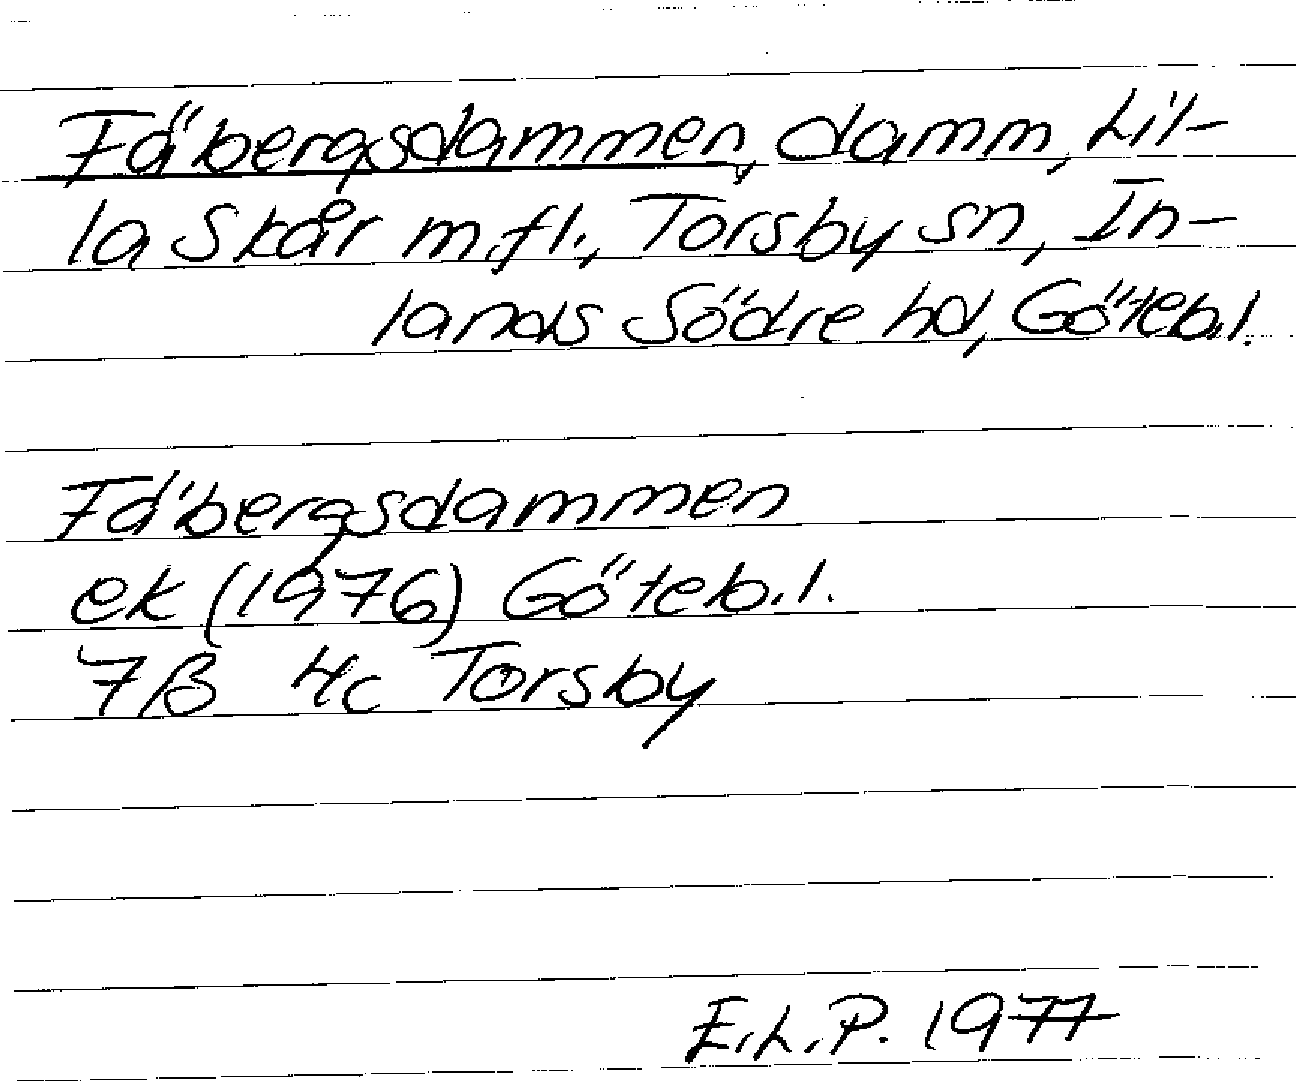 Fäbergsdammen, damm, Lil-
la Skår m.fl., Torsby sn, In-
lands Södre hd, Göteb.l.
Fäbergsdammen
ek (1976) Göteb.l.
7B 4c Torsby
E.L.P. 1977